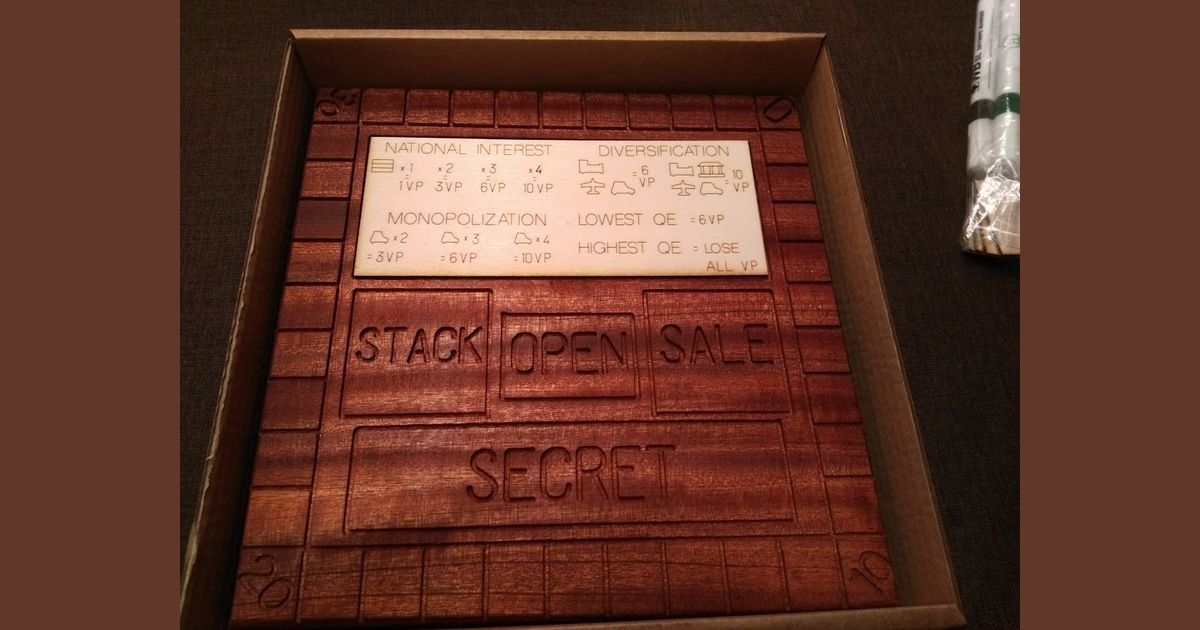 30
0
NATIONAL INTEREST
x1 x2 x3 x4
= = = =
1VP 3VP 6VP 10VP
DIVERSIFICATION
=6 VP
=10 VP
MONOPOLIZATION
x2 x3 x4
=3VP =6VP =10VP
LOWEST QE =6VP
HIGHEST QE = LOSE
ALL VP
STACK OPEN SALE
SECRET
20
10